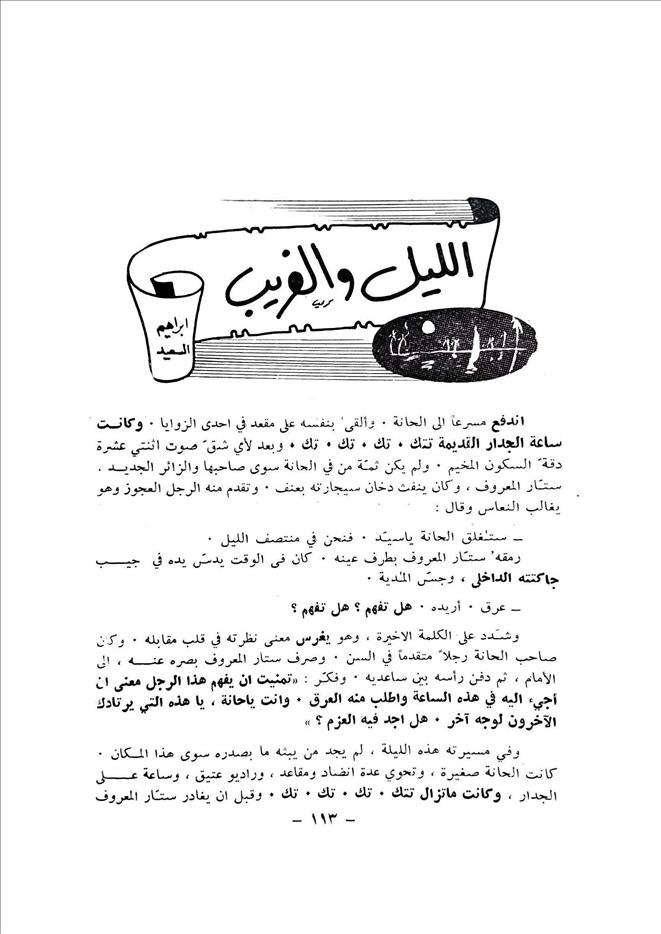 الليل والغريب
ابراهيم
السعيد
اندفع مسرعاً الى الحانة ٠ وألقى بنفسه على مقعد في احدى الزوايا ٠ وكانت
ساعة الجدار القديمة تتك ٠ تك ٠ تك ٠ تك ٠ وبعد لأي شقّ صوت اثنتي عشرة
دقة السكون المخيم ٠ ولم يكن ثمّة من في الحانة سوى صاحبها والزائر الجديد ،
ستّار المعروف ، وكان ينفث دخان سيجارته بعنف ٠ وتقدم منه الرجل العجوز وهو
يغالب النعاس وقال :
ــ ستُغلق الحانة ياسيّد ٠ فنحن في منتصف الليل ٠
رمقه ستّار المعروف بطرف عينه ٠ كان فى الوقت يدسّ يده في جيب
جاكتته الداخلي ، وجسّ المُدية ٠
ــ عرق ٠ أريده ٠ هل تفهم ؟ هل تفهم ؟
وشدد على الكلمة الاخيرة ، وهو يغرس معنى نظرته في قلب مقابله ٠ وكان
صاحب الحانة رجلاً متقدماً في السن ٠ وصرف ستار المعروف بصره عنه ، الى
الأمام ، ثم دفن رأسه بين ساعديه ٠ وفكّر : «تمنيت ان يفهم هذا الرجل معنى ان
أجيء اليه في هذه الساعة واطلب منه العرق ٠ وانت ياحانة ، يا هذه التي يرتادك
الآخرون لوجه آخر ٠ هل اجد فيه العزم ؟ »
وفي مسيرته هذه الليلة ، لم يجد من يبثه ما بصدره سوى هذا المكان ٠
كانت الحانة صغيرة ، وتحوي عدة انضاد ومقاعد ، وراديو عتيق ، وساعة على
الجدار ، وكانت ماتزال تتك ٠ تك ٠ تك ٠ تك ٠ وقبل ان يغادر ستّار المعروف
ــ ١١٣ ــ